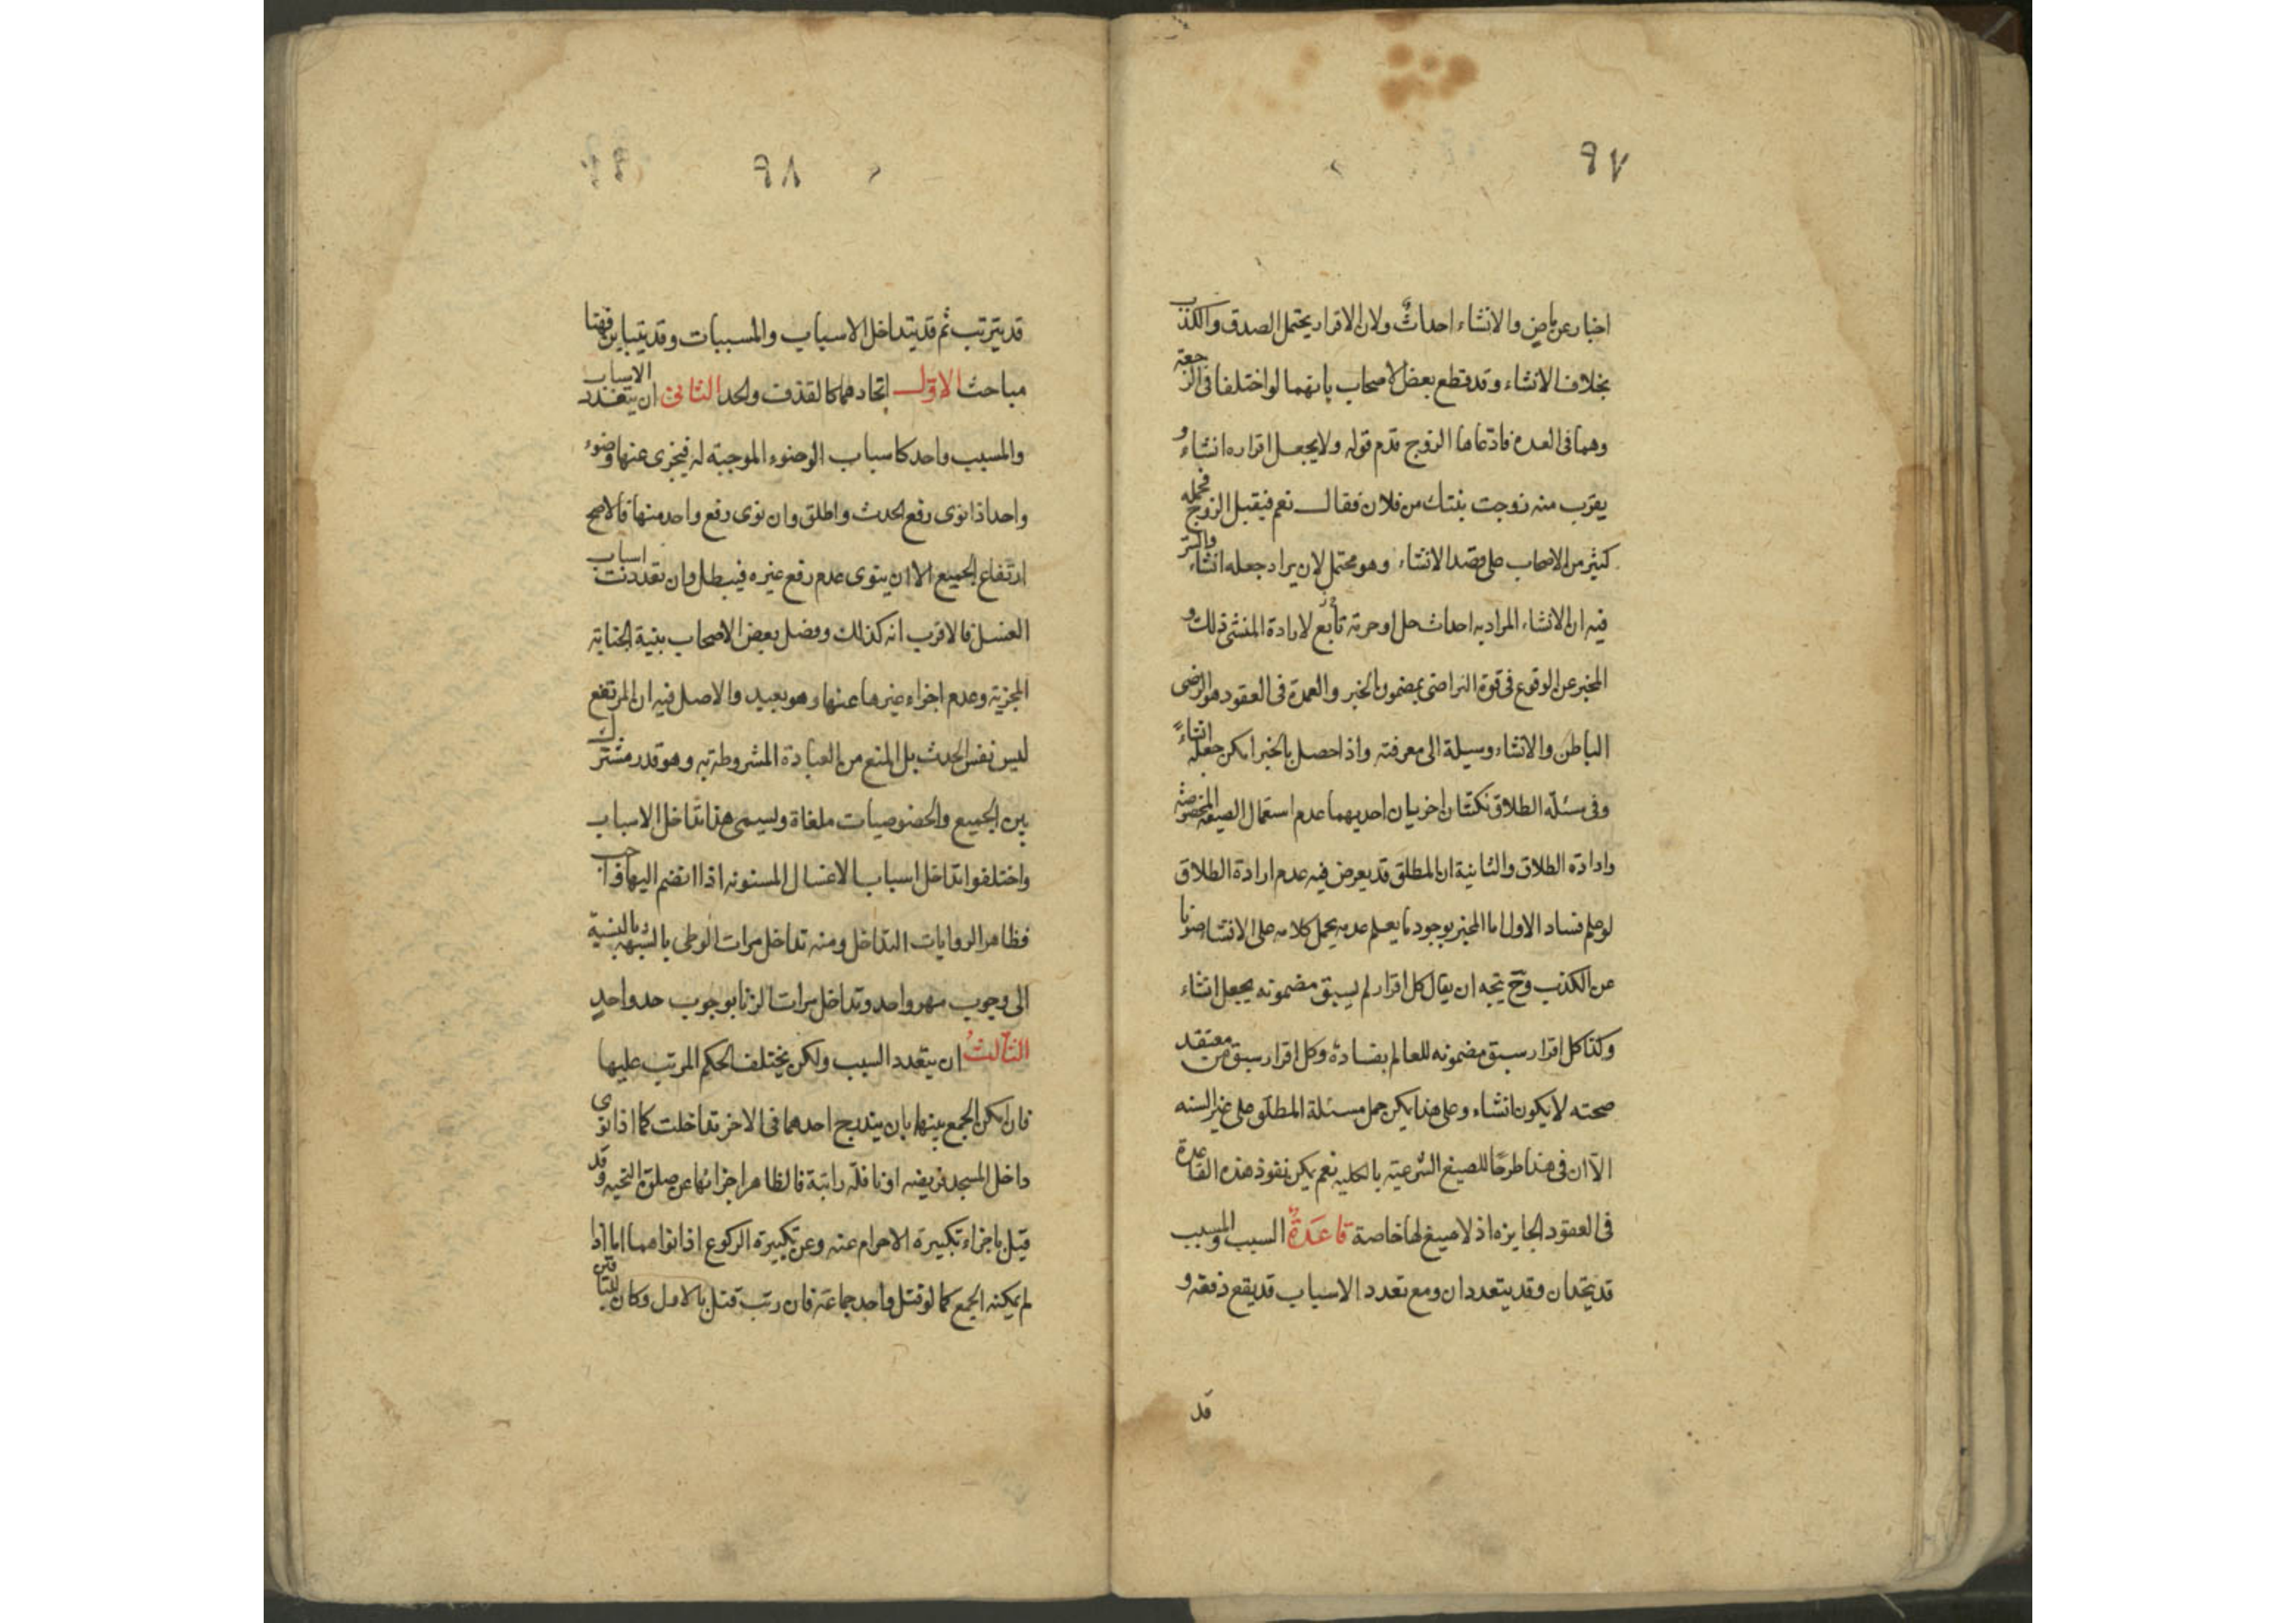 ٩٧
اخبار عن ماض والانشاء احداث ولان الاقرار يحتمل الصدق والكذب
بخلاف الانشاء وقد قطع بعض الاصحاب بانهما لو اختلفا فى الرجعة
وهما فى العدة فادعاها الزوج قدم قوله ولا يجعل اقراره انشاء و
يقرب منه زوجت بنتك من فلان فقال نعم فيقبل الزوج فحمله
كثير من الاصحاب على قصد الانشاء وهو محتمل لان يراد جعله انشاء والستر
فيه ان الانشاء المراد به احداث حل او حرمة تابع لارادة المنشئ ذلك و
المخبر عن الوقوع فى قوة التراضى بمضمون الخبر والعمدة فى العقود هو الرضى
الباطن والانشاء وسيلة الى معرفته واذا حصل بالخبر امكن جعله انشاءً
وفى مسئلة الطلاق نكتتان اخريان احديهما عدم استعمال الصيغة المخصوصة
وارادة الطلاق والثانية ان المطلق قد يعرض فيه عدم ارادة الطلاق
لو علم فساد الاول اما المخبر بوجود ما يعلم عدمه يحمل كلامه على الانشاء صونا
عن الكذب وح يتجه ان يقال كل اقرار لم يسبق مضمونه يجعل انشاء
وكذا كل اقرار سبق مضمونه للعالم بفساده وكل اقرار سبق من معتقد
صحته لا يكون انشاء وعلى هذا يمكن حمل مسئلة المطلق على غير السنه
الا ان فى هذا طرحا للصيغ الشرعية بالكليه نعم يمكن نفوذ هذه القاعدة
فى العقود الجايزه اذ لا صيغ لها خاصة قاعدة السبب والمسبب
قد يتحدان وقد يتعددان ومع تعدد الاسباب قد يقع دفعه و
قد
٩٨
قد يترتب ثم قد يتداخل الاسباب والمسببات وقد يتباين فهنا
مباحث الاول اتحادهما كالقذف والحد الثانى ان يتعدد الاسباب
والمسبب واحد كاسباب الوضوء الموجبة له فيجزى عنها وضوء
واحد اذا نوى رفع الحدث واطلق وان نوى رفع واحد منها فالاصح
ارتفاع الجميع الا ان ينوى عدم رفع غيره فيبطل وان تعددت اسباب
الغسل فالاقرب انه كذلك وفضل بعض الاصحاب بنية الجنابة
المجزية وعدم اجزاء غيرها عنها وهو بعيد والاصل فيه ان المرتفع
ليس نفس الحدث بل المنع من العبادة المشروطة به وهو قدر مشترك
بين الجميع والخصوصيات ملغاة ويسمى هذا تداخل الاسباب
واختلفوا تداخل اسباب الاغسال المسنونه اذا انضم اليها واجب
فظاهر الروايات التداخل ومنه تداخل مرات الوطى بالشبهه بالنسبة
الى وجوب مهر واحد وتداخل مرات الزنا بوجوب حد واحد
الثالث ان يتعدد السبب ولكن يختلف الحكم المرتب عليها
فان امكن الجمع بينها بان يندرج احدهما فى الاخر تداخلت كما اذا نوى
داخل المسجد فريضه او نافلة راتبة فالظاهر اجزائها عن صلوة التحيه وقد
قيل باجزاء تكبيرة الاحرام عنه وعن تكبيرة الركوع اذا نواهما اما اذا
لم يمكنه الجمع كما لو قتل واحد جماعة فان رتب قتل بالاول وكان للباقين